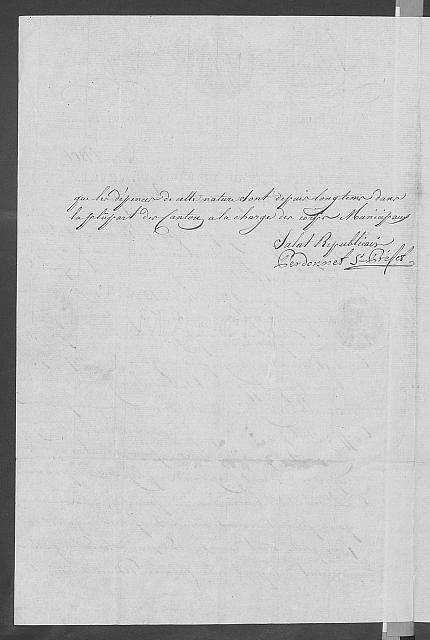 que les dépences de cette nature sont depuis longtems dans
la plûpart des Cantons a la charge des corps Municipaux
Salut Républicain
Perdonnet Ss. Préfet